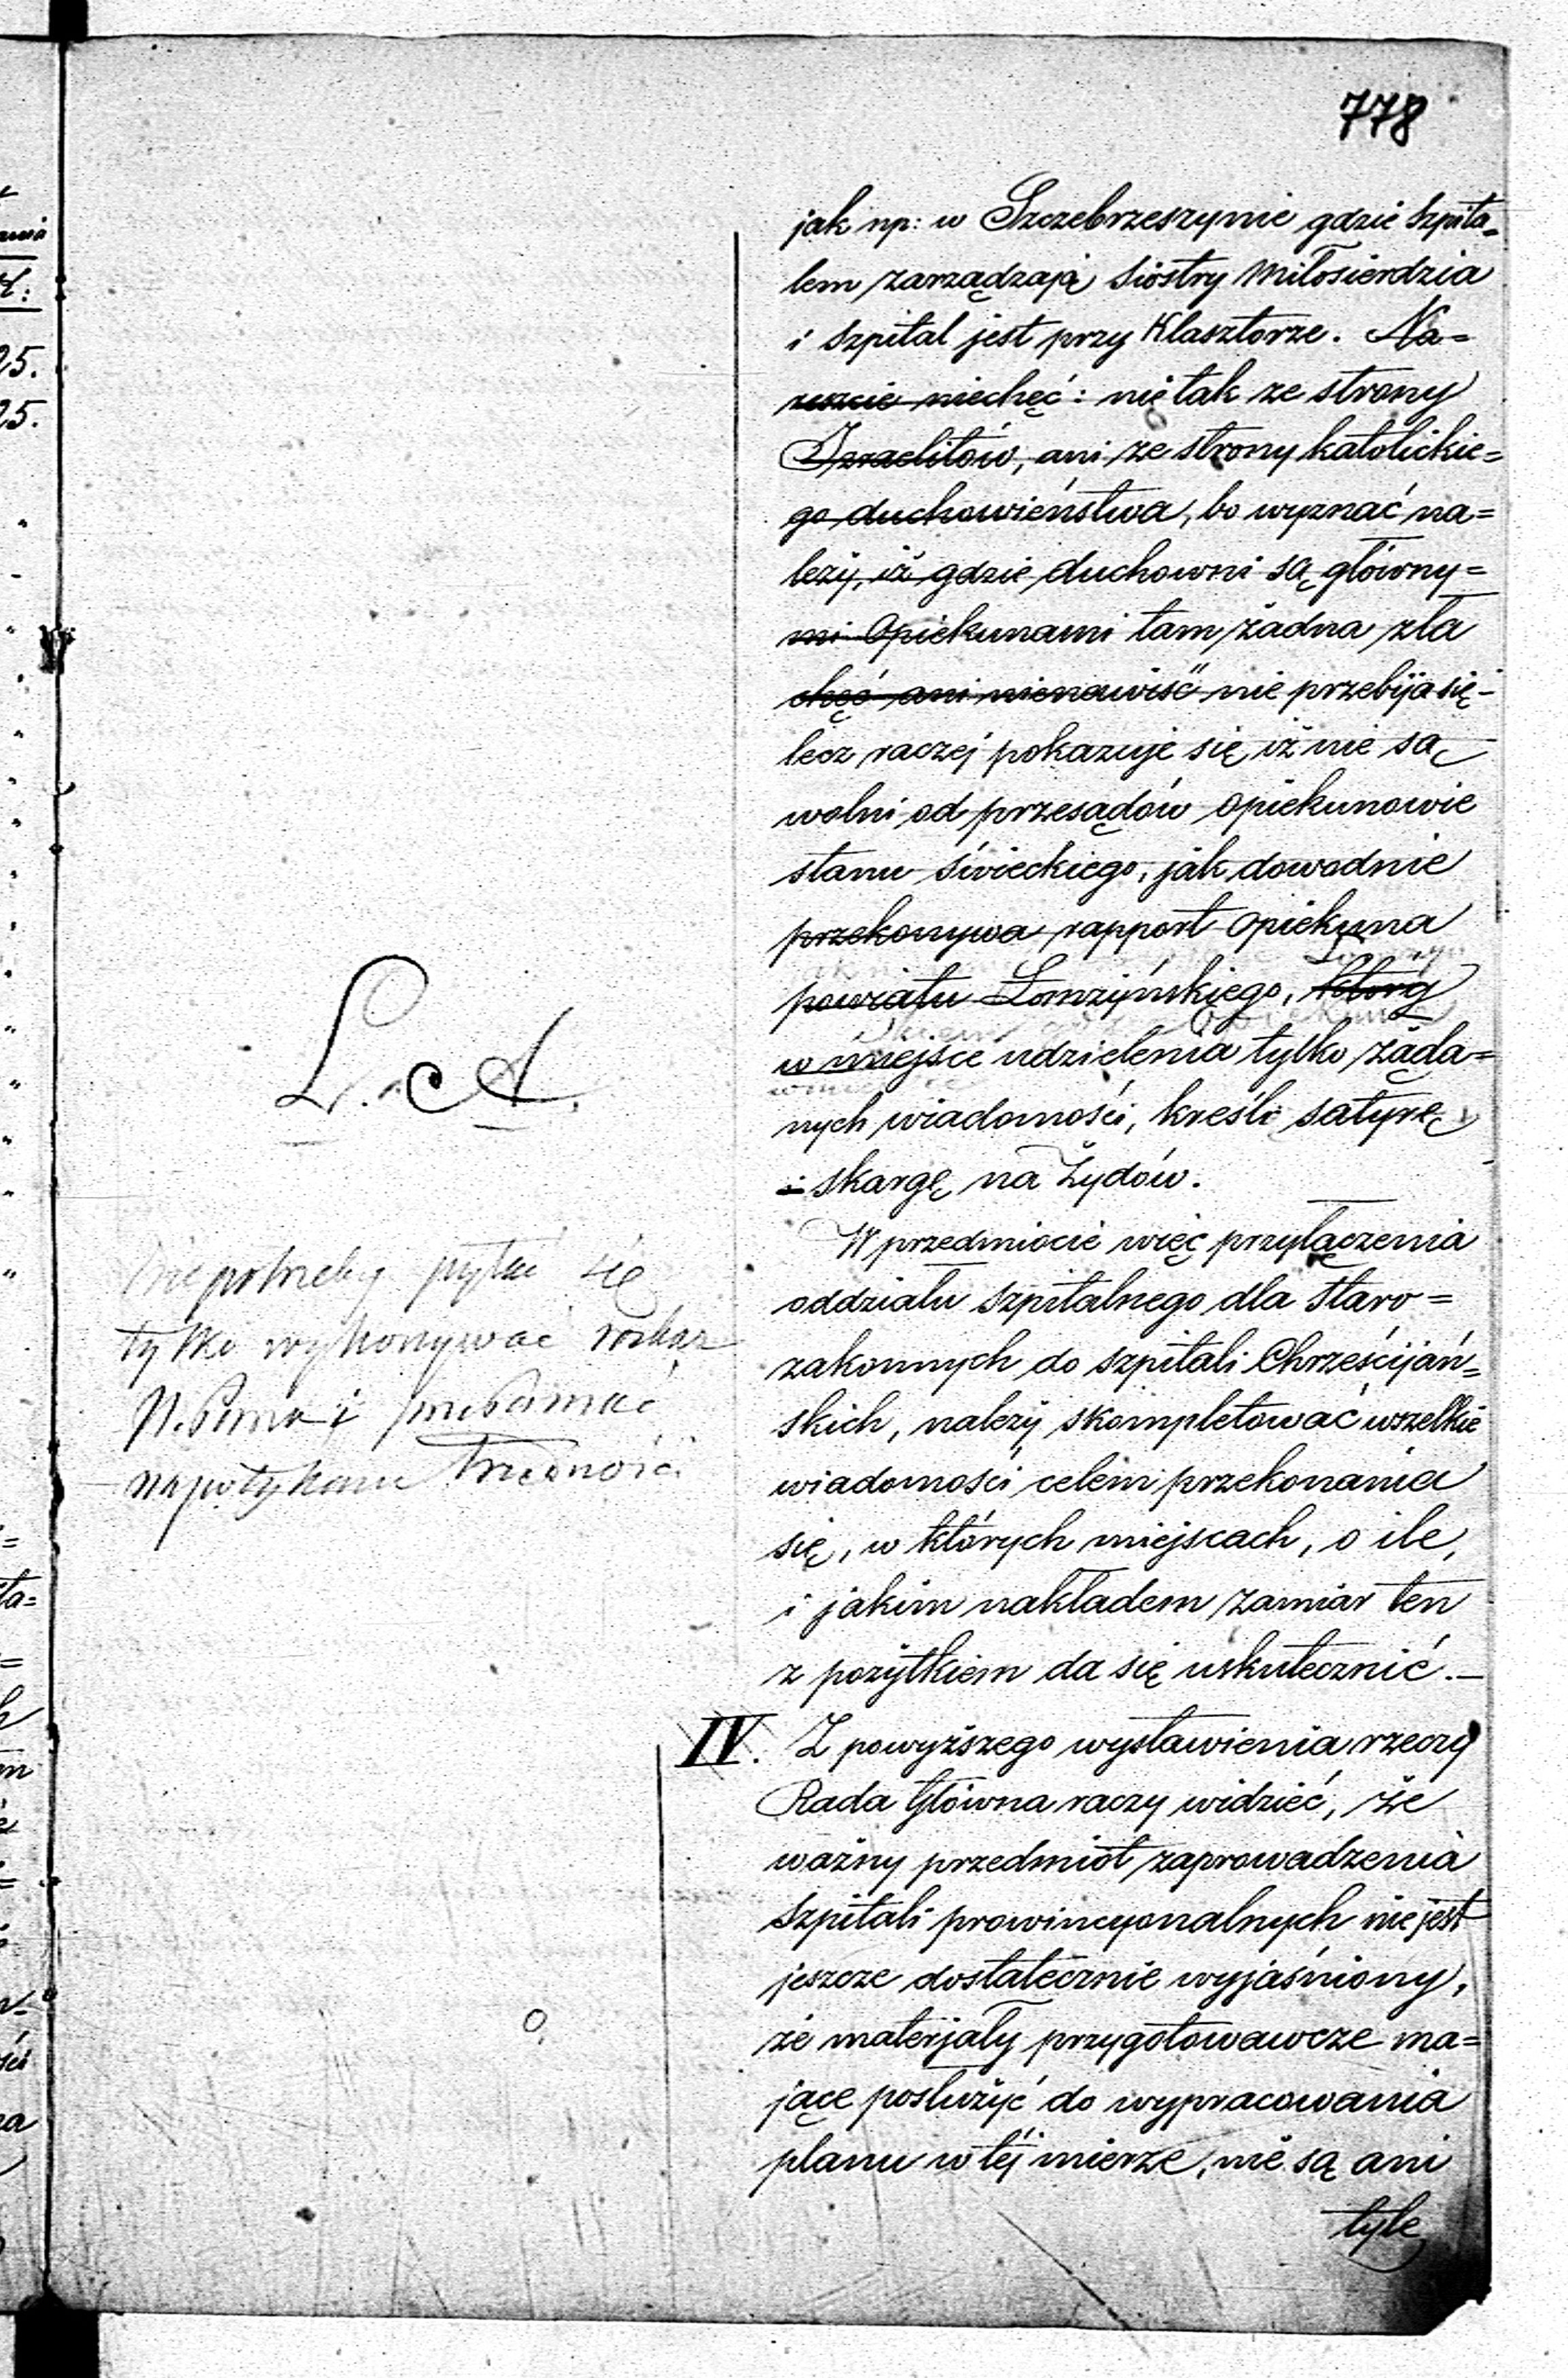 778
jak np: w Szczebrzeszynie gdzie Szpita=
lem zarządzają Siostry Miłosierdzia
i Szpital jest przy Klasztorze. Na=
reszcie niechęć: nie tak ze strony
Izraelitów, ani ze strony katolickie=
go duchowieństwa, bo wyznać na=
leży, iż gdzie duchowni są główny=
mi Opiekunami tam żadna zła
chęć ani nienawiść nie przebija się –
lecz raczej pokazuje się, iż nie są
wolni od przesądów Opiekunowie
stanu świeckiego, jak dowodnie
przekonywa rapport Opiekuna
powiatu Łomżyńskiego, który
w miejsce udzielenia tylko żąda=
nych wiadomości, kreśli satyrę
i skargę na Żydów.
W przedmiocie więc przyłączenia
oddziału szpitalnego dla Staro=
zakonnych do szpitali Chrześcijań=
skich, należy skompletować wszelkie
wiadomości celem przekonania
się, w których miejscach, o ile,
i jakim nakładem zamiar ten
z pożytkiem da się uskutecznić. –
IV. Z powyższego wystawienia rzeczy
Rada Główna raczy widzieć, że
ważny przedmiot zaprowadzenia
Szpitali prowincyonalnych nie jest
jeszcze dostatecznie wyjaśniony,
że materjały przygotowawcze ma=
jące posłużyć do wypracowania
planu w tej mierze, nie są ani
tyle
L. A.
nie potrzeby pytać się
tylko wykonywać rozkaz
N. Pana i przełamać
napotykane trudności